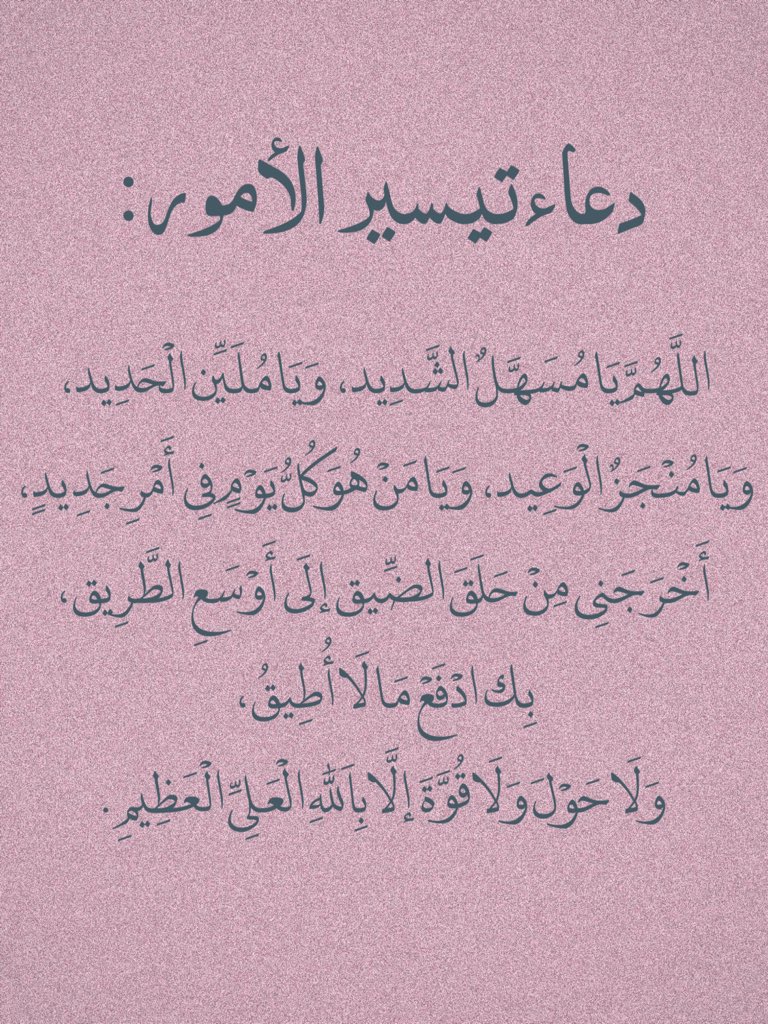 دعاء تيسير الأمور:
اللَّهُمَّ يَا مُسَهَّلٌ الشَّدِيد، وَيَا مُلَيِّن الْحَدِيد،
وَيَا مُنْجَزٌ الْوَعِيد، وَيَا مَنْ هُوَ كُلُّ يَوْمٍ فِي أَمْرِ جَدِيدٍ،
أَخْرَجَنِي مِنْ حَلَقَ الضِّيق إلَى أَوْسَعِ الطَّرِيق،
بِك ادْفَعْ مَا لَا أُطِيقُ،
وَلَا حَوْلَ وَلَا قُوَّةَ إلَّا بِاَللَّهِ الْعَلِيِّ الْعَظِيمِ.